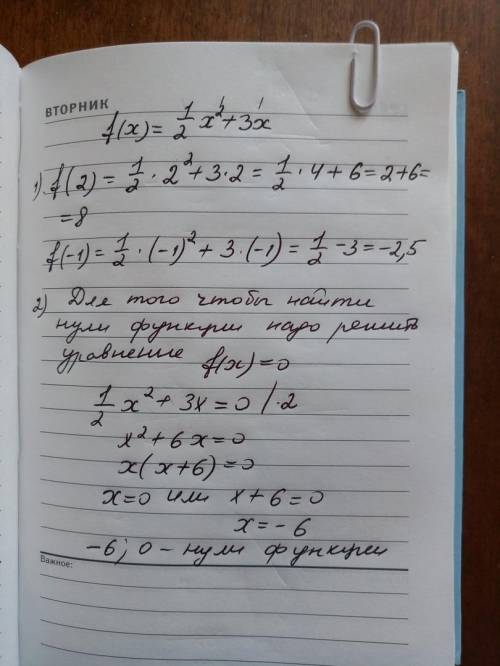 ВТОРНИК
f(x) = 1/2 x² + 3x
1) f(2) = 1/2 · 2² + 3 · 2 = 1/2 · 4 + 6 = 2 + 6 =
= 8
f(-1) = 1/2 · (-1)² + 3 · (-1) = 1/2 - 3 = -2,5
2) Для того чтобы найти
нули функции надо решить
уравнение f(x) = 0
1/2 x² + 3x = 0 / · 2
x² + 6x = 0
x(x + 6) = 0
x = 0 или x + 6 = 0
x = - 6
-6; 0 - нули функции
Важное: